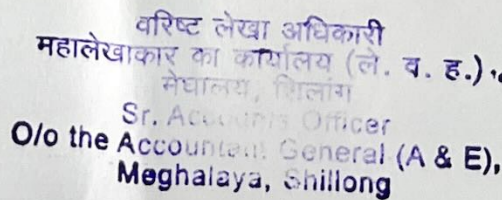 वरिष्ट लेखा अधिकारी
महालेखाकार का कार्यालय (ले. व. ह.),
मेघालय, शिलांग
Sr. Accounts Officer
O/o the Accountant General (A & E),
Meghalaya, Shillong